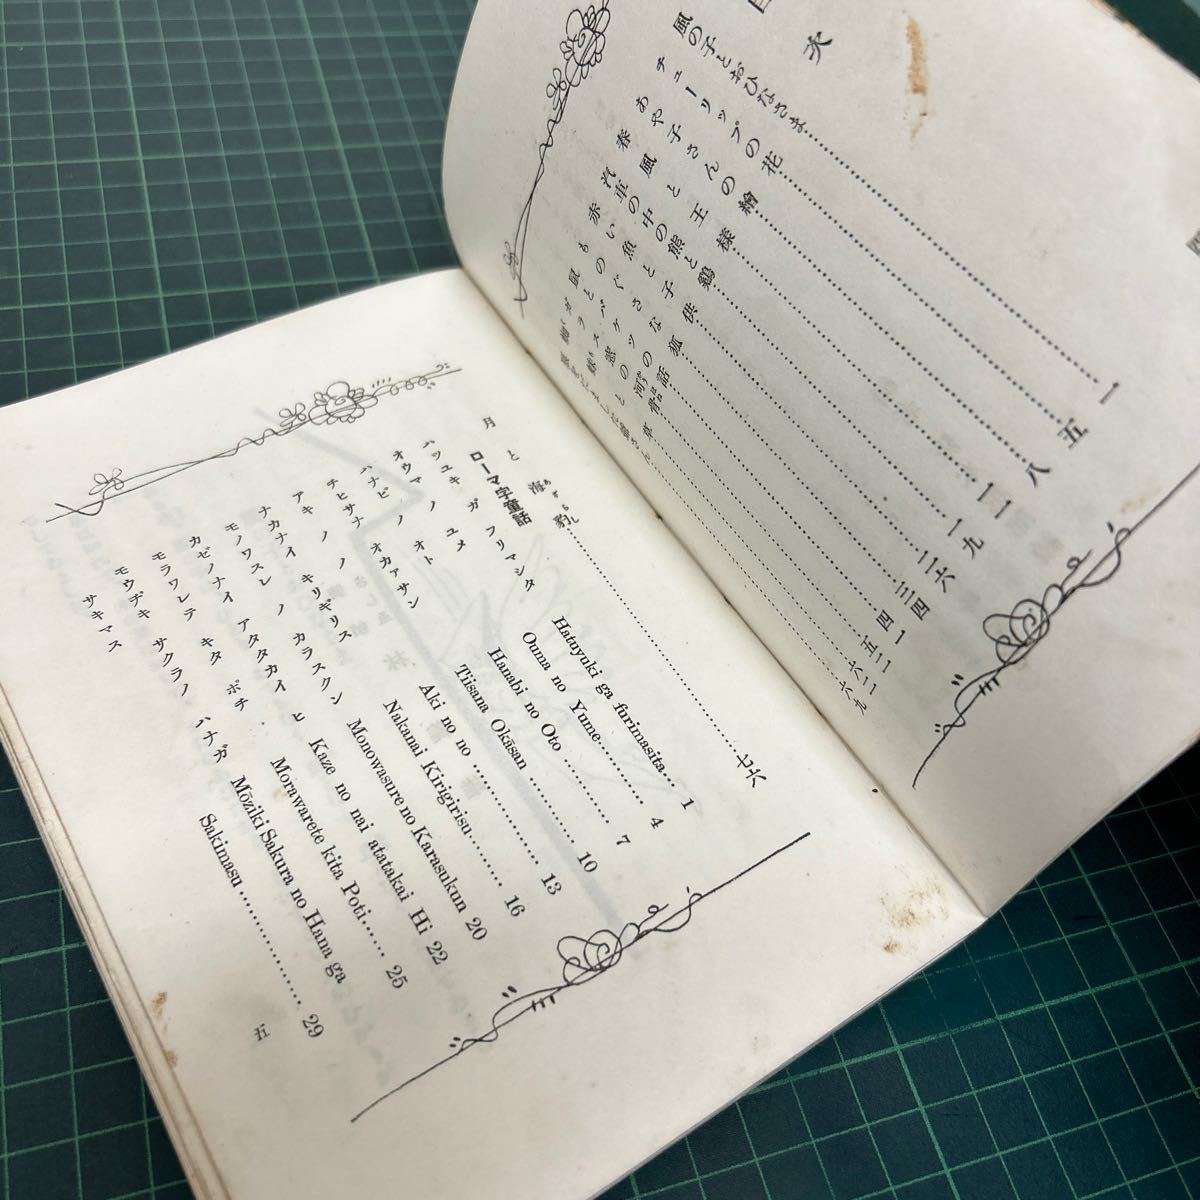 目次
風の子とおひなさま……一
チューリップの花……五
あや子さんの繪……八
春風と王様……一一
汽車の中の熊と鷄……一九
赤い魚と子供……二六
ものぐさな狐……三四
鼠とバケツの話……四一
五二
六二
六九
月と海豹……七六
ローマ字童話
ハツユキ ガ フリマシタ Hatuyuki ga furimasita… 1
オウマ ノ ユメ Ouma no Yume……… 4
ハナビ ノ オト Hanabi no Oto ……… 7
チヒサナ オカアサン Tiisana Okāsan ……… 10
アキ ノ ノ Aki no no ……… 13
ナカナイ キリギリス Nakanai Kirigirisu…… 16
モノワスレ ノ カラスクン Monowasure no Karasukun 20
カゼノナイ アタタカイ ヒ Kaze no nai atatakai Hi 22
モラワレテ キタ ポチ Morawarete kita Poti…… 25
モウヂキ サクラノ ハナガ サキマス Mōziki Sakura no Hana ga Sakimasu ……… 29
五